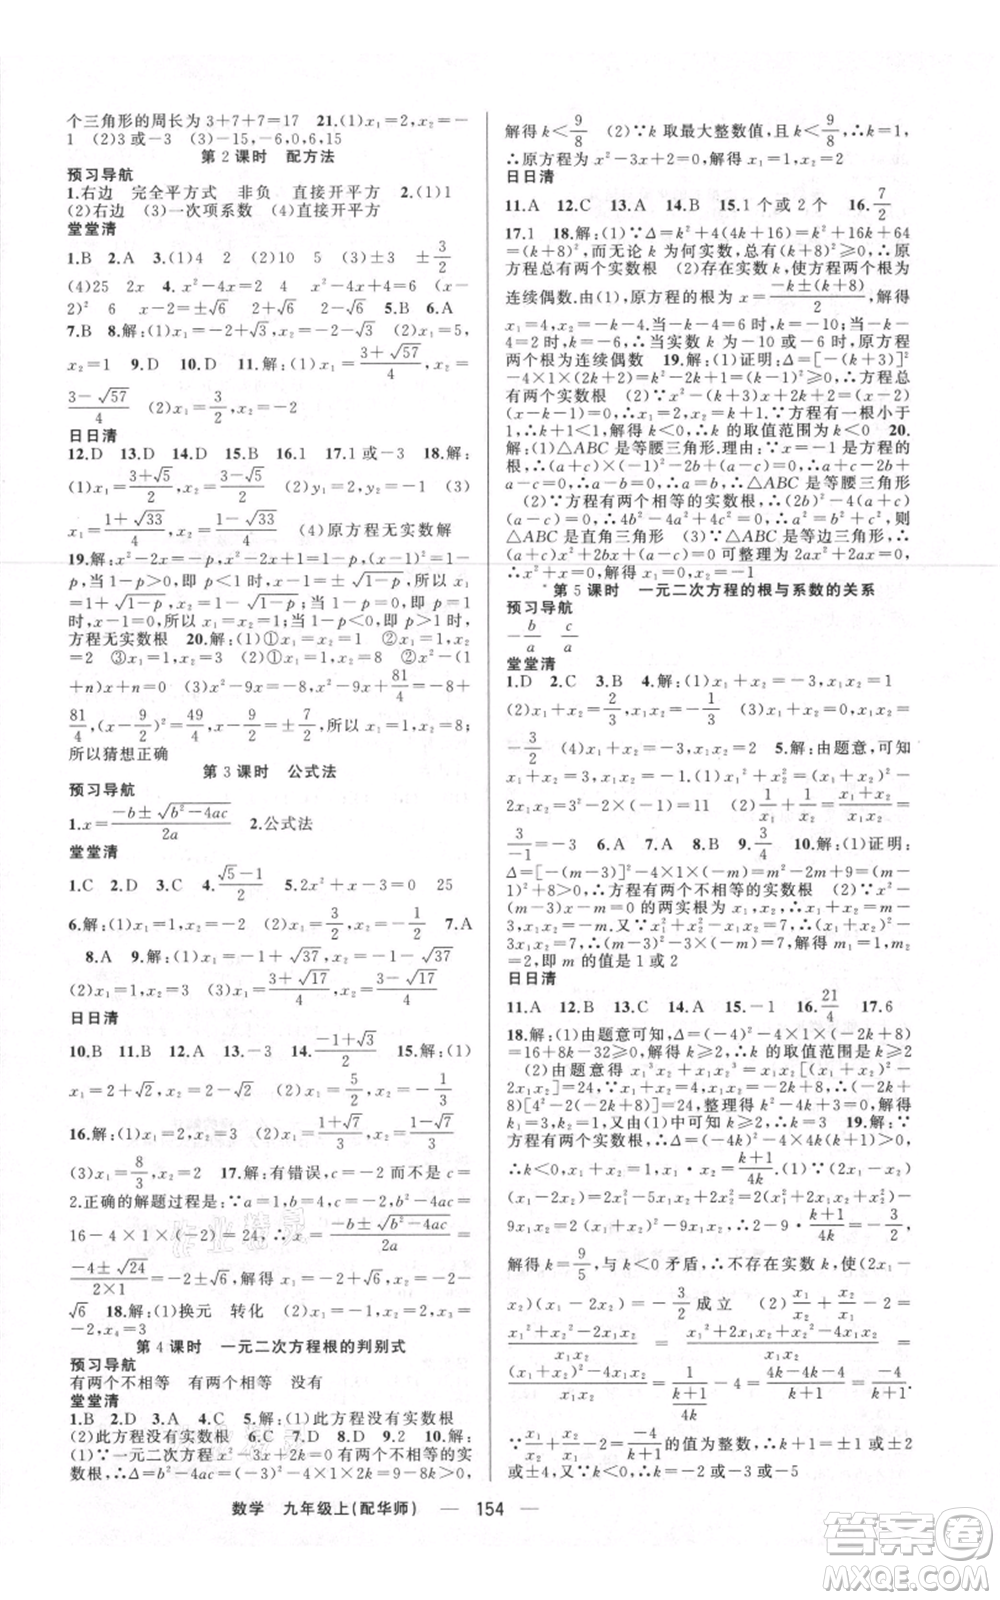 个三角形的周长为 3+7+7=17  21.(1)x₁=2,x₂=-
1  (2)3 或-3  (3)-15,-6,0,6,15
第 2 课时  配方法
预习导航
1.右边  完全平方式  非负  直接开平方  2.(1)1
(2)右边  (3)一次项系数  (4)直接开平方
堂堂清
1.B  2.A  3.(1)4  2  (2)16  4  (3)±3  ±3/2
(4)25  2x  4.x²-4x=2  x²-4x+4=6  (x-
2)²  6  x-2=±√6  2+√6  2-√6  5.B  6.A
7.B  8.解:(1)x₁=-2+√3,x₂=-2-√3  (2)x₁=5,
x₂=1  9.D  10.D  11.解:(1)x₁=(3+√57)/4,x₂=
(3-√57)/4  (2)x₁=3/2,x₂=-2
日日清
12.D  13.D  14.D  15.B  16.1  17.1 或-3  18.解:
(1)x₁=(3+√5)/2,x₂=(3-√5)/2  (2)y₁=2,y₂=-1  (3)
x₁=(1+√33)/4,x₂=(1-√33)/4  (4)原方程无实数解
19.解:x²-2x=-p,x²-2x+1=1-p,(x-1)²=1-
p,当 1-p>0 时,x-1=±√(1-p),所以 x₁=1+
√(1-p),x₂=1-√(1-p);当 1-p=0 时,x₁=x₂=1;当 1-p<0
时,方程无实数根  20.解:(1)①x₁=x₂=1  ②x₁=1,x₂
=2  ③x₁=1,x₂=3  (2)①x₁=1,x₂=8  ②x²-(1
+n)x+n=0  (3)x²-9x+8=0,x²-9x+81/4=-8+
81/4,(x-9/2)²=49/4,x-9/2=±7/2,所以 x₁=1,x₂=8;
所以猜想正确
第 3 课时  公式法
预习导航
1.x=(-b±√(b²-4ac))/2a  2.公式法
堂堂清
1.C  2.D  3.C  4.(√5-1)/2  5.2x²+x-3=0  25
6.解:(1)x₁=0,x₂=-3/2  (2)x₁=1,x₂=-1/2  7.A
8.A  9.解:(1)x₁=-1+√37,x₂=-1-√37
(2)x₁=x₂=1  (3)x₁=(3+√17)/4,x₂=(3-√17)/4
日日清
10.B  11.B  12.A  13.-3  14.(-1+√3)/2  15.解:(1)
x₁=2+√2,x₂=2-√2  (2)x₁=5/2,x₂=1
16.解:(1)x₁=2,x₂=-1  (2)x₁=(1+√7)/3,x₂=(1-√7)/3
(3)x₁=8/3,x₂=0  17.解:有错误,c=2 而不是 c=
2.正确的解题过程是:∵a=1,b=4,c=-2,∴b²-4ac=
16-4×1×(-2)=24,∴x=(-b±√(b²-4ac))/2a=
(-4±√24)/(2×1)=-2±√6,解得 x₁=-2+√6,x₂=-2-
√6  18.解:(1)换元  转化  (2)x₁=-3,x₂=-2,x₃=
2,x₄=3
第 4 课时  一元二次方程根的判别式
预习导航
有两个不相等  有两个相等  没有
堂堂清
1.B  2.D  3.A  4.C  5.解:(1)此方程没有实数根
(2)此方程没有实数根  6.C  7.D  8.C  9.2  10.解:
(1)∵一元二次方程 x²-3x+2k=0 有两个不相等的实
数根,∴Δ=b²-4ac=(-3)²-4×1×2k=9-8k>0,
解得 k<9/8  (2)∵k 取最大整数值,且 k<9/8,∴k=1,
∴原方程为 x²-3x+2=0,解得 x₁=1,x₂=2
日日清
11.A  12.C  13.A  14.A  15.1 个或 2 个  16.7/2
17.1  18.解:(1)∵Δ=k²+4(4k+16)=k²+16k+64
=(k+8)²,而无论 k 为何实数,总有(k+8)²≥0,∴原
方程总有两个实数根  (2)存在实数 k,使方程两个根为
连续偶数.由(1),原方程的根为 x=(-k±(k+8))/2,解得
x₁=4,x₂=-k-4.当-k-4=6 时,k=-10;当-k-
4=2 时,k=-6,∴当实数 k 为-10 或-6 时,原方程
两个根为连续偶数  19.解:(1)证明:Δ=[-(k+3)]²
-4×1×(2k+2)=k²-2k+1=(k-1)²≥0,∴方程总
有两个实数根  (2)∵x²-(k+3)x+2k+2=(x-2)
(x-k-1)=0,∴x₁=2,x₂=k+1.∵方程有一根小于
1,∴k+1<1,解得 k<0,∴k 的取值范围为 k<0  20.
解:(1)△ABC 是等腰三角形.理由:∵x=-1 是方程的
根,∴(a+c)×(-1)²-2b+(a-c)=0,∴a+c-2b+
a-c=0,∴a-b=0,∴a=b,∴△ABC 是等腰三角形
(2)∵方程有两个相等的实数根,∴(2b)²-4(a+c)
(a-c)=0,∴4b²-4a²+4c²=0,∴a²=b²+c²,则
△ABC 是直角三角形  (3)∵△ABC 是等边三角形,
∴(a+c)x²+2bx+(a-c)=0 可整理为 2ax²+2ax=
0,∴x²+x=0,解得 x₁=0,x₂=-1
*第 5 课时  一元二次方程的根与系数的关系
预习导航
-b/a  c/a
堂堂清
1.D  2.C  3.B  4.解:(1)x₁+x₂=-3,x₁x₂=1
(2)x₁+x₂=2/3,x₁x₂=-1/3  (3)x₁+x₂=0,x₁x₂=
-3/2  (4)x₁+x₂=4,x₁x₂=2  5.解:由题意,可知
x₁+x₂=3,x₁x₂=-1.(1)x₁²+x₂²=(x₁+x₂)²-
2x₁x₂=3²-2×(-1)=11  (2)1/x₁+1/x₂=(x₁+x₂)/(x₁x₂)=
3/-1=-3  6.A  7.A  8.B  9.3/4  10.解:(1)证明:
∵Δ=[-(m-3)]²-4×1×(-m)=m²-2m+9=
(m-1)²+8>0,∴方程有两个不相等的实数根
(2)∵x²-(m-3)x-m=0 的两实根为 x₁,x₂,∴x₁+x₂=
m-3,x₁x₂=-m.又∵x₁²+x₂²-x₁x₂=7,∴(x₁+x₂)²-
3x₁x₂=7,即(m-3)²-3×(-m)=7,解得 m₁=1,m₂
=2,即 m 的值是 1 或 2
日日清
11.A  12.B  13.C  14.A  15.-1  16.21/4  17.6
18.解:(1)由题意可知,Δ=(-4)²-4×1×(-2k+8)
=16+8k-32≥0,解得 k≥2,∴k 的取值范围是 k≥2
(2)由题意得 x₁³x₂+x₁x₂³=x₁x₂[(x₁+x₂)²-
2x₁x₂]=24,∵x₁+x₂=4,x₁x₂=-2k+8,∴(-2k+8)
[4²-2(-2k+8)]=24,整理得 k²-4k+3=0,解得
k₁=3,k₂=1.由(1)可知 k≥2,∴k=3  19.解:∵
方程有两个实数根,∴Δ=(-4k)²-4×4k(k+1)≥0,
∴k<0.又∵x₁+x₂=1,x₁·x₂=(k+1)/4k.(1)∵(2x₁-
x₂)(x₁-2x₂)=2x₁²+2x₂²-5x₁x₂=2(x₁+x₂)²-
9x₁x₂=-3/2,∴2×1²-9×(k+1)/4k=-3/2,
解得 k=9/5,与 k<0 矛盾,∴不存在实数 k,使(2x₁-
x₂)(x₁-2x₂)=-3/2 成立  (2)x₁/x₂+x₂/x₁-2=
(x₁²+x₂²-2x₁x₂)/(x₁x₂)=((x₁+x₂)²-4x₁x₂)/(x₁x₂)=
(x₁+x₂)²/(x₁x₂)-4=1/((k+1)/4k)-4=(4k-4k-4)/(k+1)=-4/(k+1).
∵x₁/x₂+x₂/x₁-2=-4/(k+1)的值为整数,∴k+1=±1 或±2
或±4.又∵k<0,∴k=-2 或-3 或-5
数学  九年级上(配华师)  —  154  —
答案圈
MXQE.COM
作业精灵